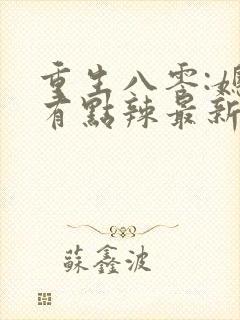 重生八零:媳
有點辣最新
蘇鑫波